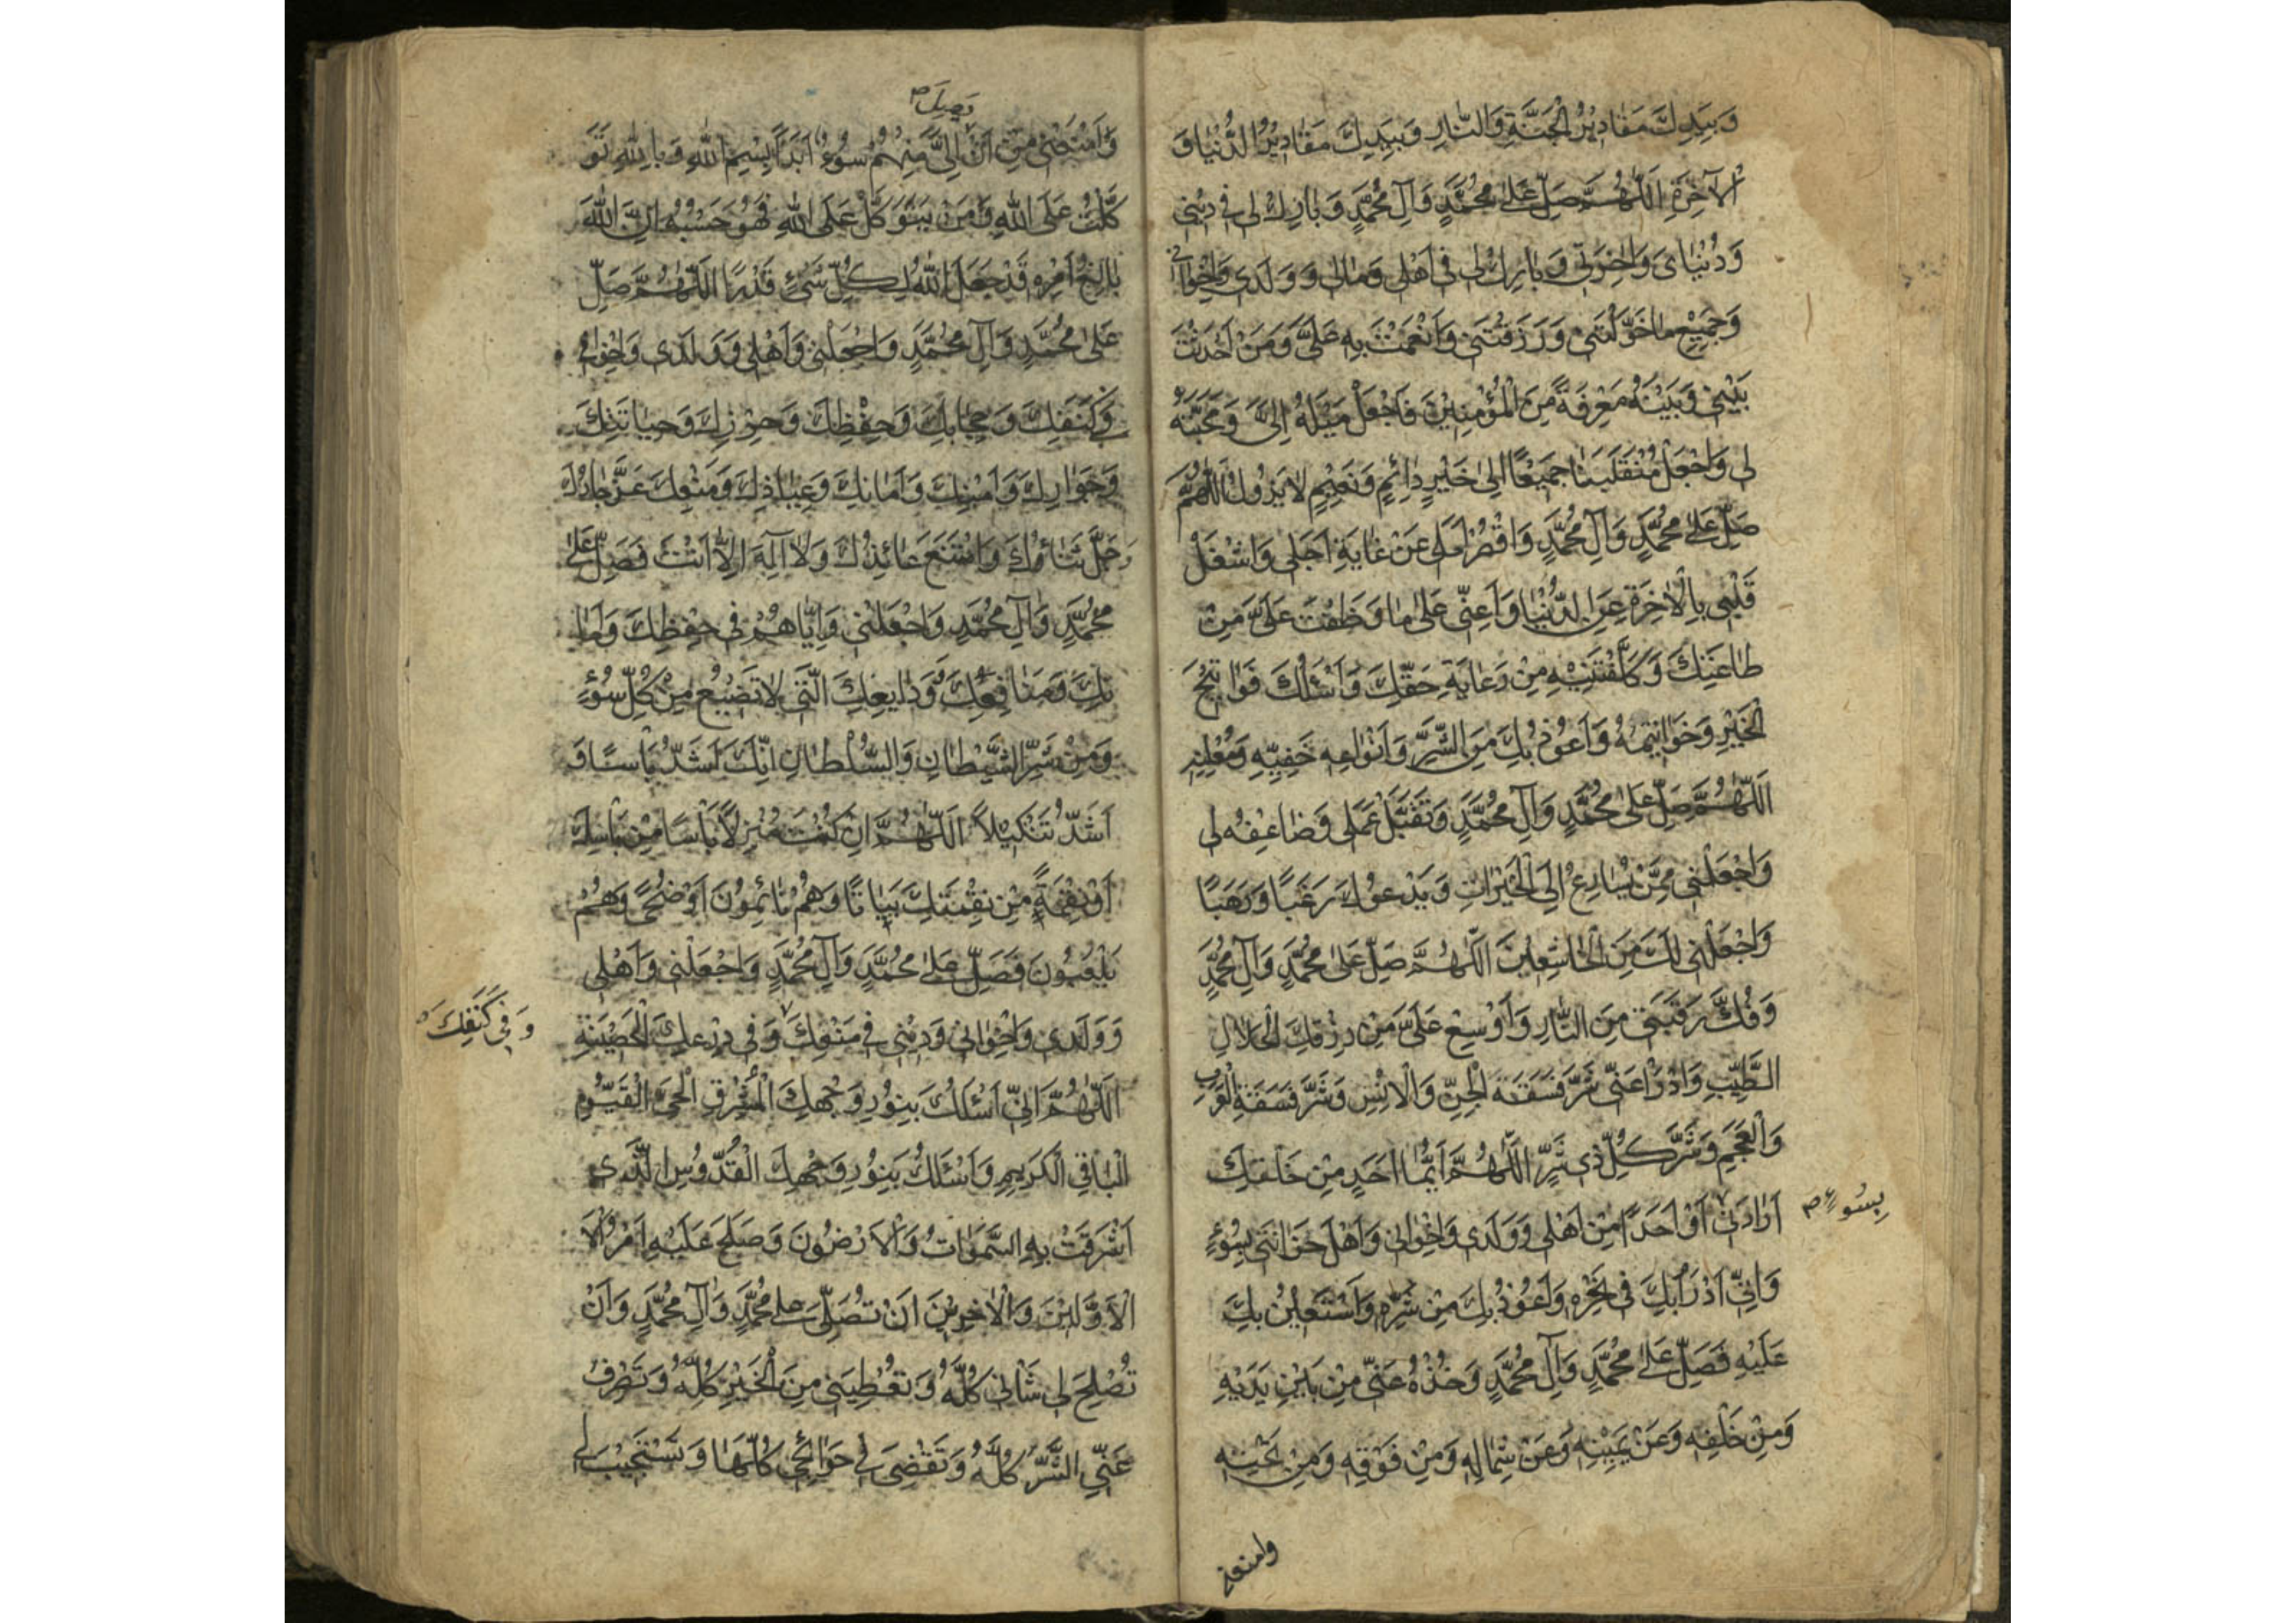 وَبِيَدِكَ مَقَادِيْرُ الْجَنَّةِ وَالنَّارِ وَبِيَدِكَ مَقَادِيْرُ الدُّنْيَا وَ
الْآخِرَةِ اَللّٰهُمَّ صَلِّ عَلٰى مُحَمَّدٍ وَآلِ مُحَمَّدٍ وَبَارِكْ لِي فِي دِيْنِي
وَدُنْيَايَ وَاٰخِرَتِي وَبَارِكْ لِي فِي اَهْلِي وَمَالِي وَوَلَدِي وَاِخْوَانِي
وَجَمِيْعِ مَا خَوَّلْتَنِي وَرَزَقْتَنِي وَاَنْعَمْتَ بِهِ عَلَيَّ وَمَنْ اَحْدَثْتَ
بَيْنِي وَبَيْنَهُ مَعْرِفَةً مِنَ الْمُؤْمِنِيْنَ فَاجْعَلْ مَيْلَهُ اِلَيَّ وَمَحَبَّتَهُ
لِي وَاجْعَلْ مُنْقَلَبَنَا جَمِيْعًا اِلٰى خَيْرٍ دَائِمٍ وَنَعِيْمٍ لَا يَزُوْلُ اَللّٰهُمَّ
صَلِّ عَلٰى مُحَمَّدٍ وَآلِ مُحَمَّدٍ وَاقْصُرْ اَمَلِي عَنْ غَايَةِ اَجَلِي وَاشْغَلْ
قَلْبِي بِالْاٰخِرَةِ عَنِ الدُّنْيَا وَاَعِنِّي عَلٰى مَا وَظَفْتَ عَلَيَّ مِنْ
طَاعَتِكَ وَكَلَّفْتَنِيْهِ مِنْ رَعَايَةِ حَقِّكَ وَاَسْئَلُكَ فَوَاتِحَ
الْخَيْرِ وَخَوَاتِيْمَهُ وَاَعُوْذُ بِكَ مِنَ الشَّرِّ وَاَنْوَاعِهِ خَفِيِّهِ وَمُعْلَنِهِ
اَللّٰهُمَّ صَلِّ عَلٰى مُحَمَّدٍ وَآلِ مُحَمَّدٍ وَتَقَبَّلْ عَمَلِي وَضَاعِفْهُ لِي
وَاجْعَلْنِي مِمَّنْ يُسَارِعُ اِلَى الْخَيْرَاتِ وَيَدْعُوْكَ رَغَبًا وَرَهَبًا
وَاجْعَلْنِي لَكَ مِنَ الْخَاشِعِيْنَ اَللّٰهُمَّ صَلِّ عَلٰى مُحَمَّدٍ وَآلِ مُحَمَّدٍ
وَفُكَّ رَقَبَتِي مِنَ النَّارِ وَاَوْسِعْ عَلَيَّ مِنْ رِزْقِكَ الْحَلَالِ
الطَّيِّبِ وَادْرَأْ عَنِّي شَرَّ فَسَقَةِ الْجِنِّ وَالْاِنْسِ وَشَرَّ فَسَقَةِ الْعَرَبِ
وَالْعَجَمِ وَشَرَّ كُلِّ ذِي شَرٍّ اَللّٰهُمَّ اَيُّمَا اَحَدٍ مِنْ خَلْقِكَ
اَرَادَنِي اَوْ اَحَدًا مِنْ اَهْلِي وَوَلَدِي وَاِخْوَانِي وَاَهْلِ حُزَانَتِي بِسُوْءٍ
بِسُوءٍ ص
وَاِنِّي اَدْرَأُ بِكَ فِي نَحْرِهِ وَاَعُوْذُ بِكَ مِنْ شَرِّهِ وَاَسْتَعِيْنُ بِكَ
عَلَيْهِ فَصَلِّ عَلٰى مُحَمَّدٍ وَآلِ مُحَمَّدٍ وَخُذْهُ عَنِّي مِنْ بَيْنِ يَدَيْهِ
وَمِنْ خَلْفِهِ وَعَنْ يَمِيْنِهِ وَعَنْ شِمَالِهِ وَمِنْ فَوْقِهِ وَمِنْ تَحْتِهِ
وامنعنى
يَصِلَ ص
وَامْنَعْنِي مِنْ اَنْ اِلَيَّ مِنْهُمْ سُوْءٌ اَبَدًا بِسْمِ اللّٰهِ وَبِاللّٰهِ تَوَ
كَّلْتُ عَلَى اللّٰهِ وَمَنْ يَتَوَكَّلْ عَلَى اللّٰهِ فَهُوَ حَسْبُهُ اِنَّ اللّٰهَ
بَالِغُ اَمْرِهِ قَدْ جَعَلَ اللّٰهُ لِكُلِّ شَيْءٍ قَدْرًا اَللّٰهُمَّ صَلِّ
عَلٰى مُحَمَّدٍ وَآلِ مُحَمَّدٍ وَاجْعَلْنِي وَاَهْلِي وَوَلَدِي وَاِخْوَانِي
فِي كَنَفِكَ وَحِجَابِكَ وَحِفْظِكَ وَحِرْزِكَ وَحِيَاتَتِكَ
وَجَوَارِكَ وَاَمْنِكَ وَاَمَانِكَ وَعِيَاذِكَ وَمَنْعِكَ عَزَّ جَارُكَ
وَجَلَّ ثَنَاؤُكَ وَامْتَنَعَ عَائِذُكَ وَلَا اِلٰهَ اِلَّا اَنْتَ فَصَلِّ عَلٰى
مُحَمَّدٍ وَآلِ مُحَمَّدٍ وَاجْعَلْنِي وَاِيَّاهُمْ فِي حِفْظِكَ وَاَمَا
نِكَ وَمَنَافِعِكَ وَوَدَايِعِكَ الَّتِي لَا تَضِيْعُ مِنْ كُلِّ سُوْءٍ
وَمِنْ شَرِّ الشَّيْطَانِ وَالسُّلْطَانِ اِنَّكَ اَشَدُّ بَأْسًا وَ
اَشَدُّ تَنْكِيْلًا اَللّٰهُمَّ اِنْ كُنْتَ مُنْزِلًا بَأْسًا مِنْ بَأْسِكَ
اَوْ نِقْمَةً مِنْ نِقْمَتِكَ بَيَاتًا وَهُمْ نَائِمُوْنَ اَوْ ضُحًى وَهُمْ
يَلْعَبُوْنَ فَصَلِّ عَلٰى مُحَمَّدٍ وَآلِ مُحَمَّدٍ وَاجْعَلْنِي وَاَهْلِي
وَوَلَدِي وَاِخْوَانِي وَدِيْنِي فِي مَنْعِكَ وَفِي دِرْعِكَ الْحَصِيْنَةِ
وَفِي كَنَفِكَ
اَللّٰهُمَّ اِنِّي اَسْئَلُكَ بِنُوْرِ وَجْهِكَ الْمُشْرِقِ الْحَيِّ الْقَيُّوْمِ
الْبَاقِي الْكَرِيْمِ وَاَسْئَلُكَ بِنُوْرِ وَجْهِكَ الْقُدُّوْسِ الَّذِي
اَشْرَقَتْ بِهِ السَّمٰوَاتُ وَالْاَرَضُوْنَ وَصَلَحَ عَلَيْهِ اَمْرُ الْاَ
الْاَوَّلِيْنَ وَالْاٰخِرِيْنَ اَنْ تُصَلِّيَ عَلٰى مُحَمَّدٍ وَآلِ مُحَمَّدٍ وَاَنْ
تُصْلِحَ لِي شَأْنِي كُلَّهُ وَتُعْطِيَنِي مِنَ الْخَيْرِ كُلِّهِ وَتَصْرِفَ
عَنِّي الشَّرَّ كُلَّهُ وَتَقْضِيَ لِي حَوَائِجِي كُلَّهَا وَتَسْتَجِيْبَ لِي